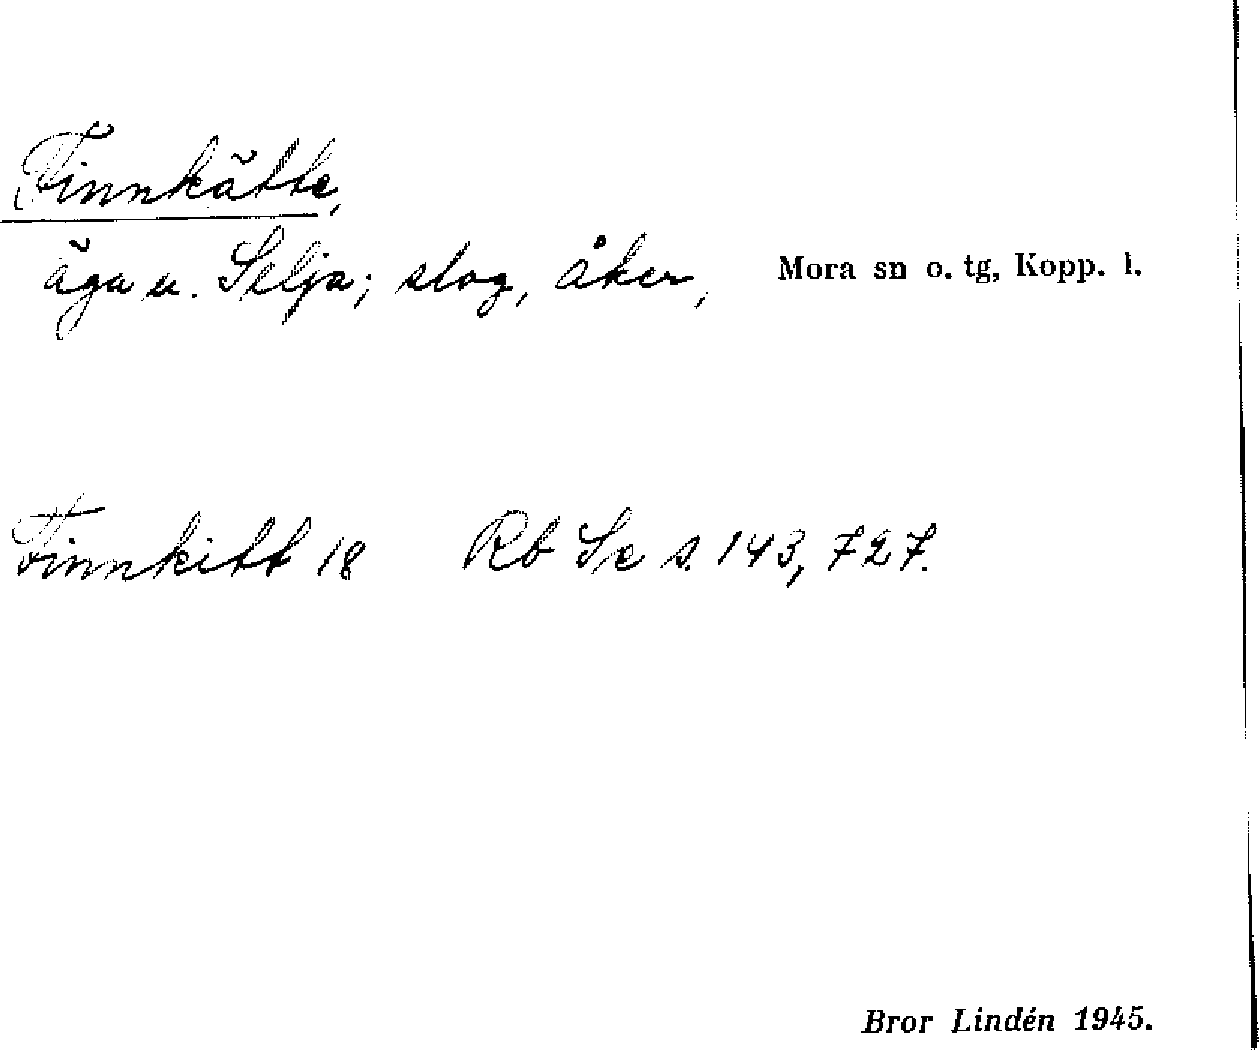 Finnkätte,
äga u. Selja; slog, åker, Mora sn o. tg, Kopp. l.
Finnkitt 18 Rb Se s. 143, 727.
Bror Lindén 1945.